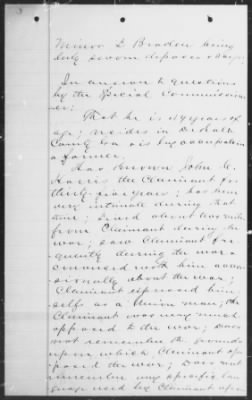 Minor L Braden being
duly sworn deposes & says
In answer to questions
by the Special Commissioner
That he is 49 years of
age; resides in DeKalb
County Ga is by occupation
a farmer.
Has known John C.
Harris the Claimant for
thirty-five years; has been
very intimate during that
time; lived about two miles
from Claimant during the
war; saw Claimant fre-
quently during the war
conversed with him occa-
sionally about the war;
Claimant expressed him
self as a Union man; the
Claimant was very much
opposed to the war; Does
not remember the grounds
upon which Claimant op-
posed the war; Does not
remember any specific lan
guage used by Claimant